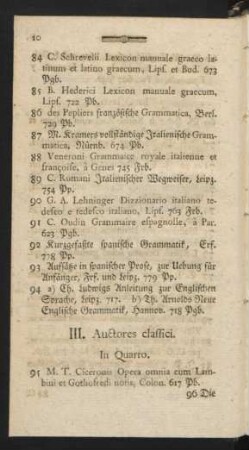 10
84 C. Schrevelii Lexicon manuale graeco la-
tinum et latino graecum, Lipſ. et Bud. 673
Pgb.
85 B. Hederici Lexicon manuale graecum,
Lipſ. 722 Pb.
86 des Pepliers franzöſiſche Grammatica, Berl.
729 Pb.
87 M. Kramers vollſtändige Italieniſche Gram-
matica, Nürnb. 674 Pb.
88 Veneroni Grammaire royale italienne et
françoise, à Genev 745 Frb.
89 C. Romani Italieniſcher Wegweiſer, leipz.
754 Pp.
90 G. A. Lehninger Dizzionario italiano te-
desco e tedesco italiano, Lipſ. 763 Frb.
91 C. Oudin Grammaire espagnolle, à Par.
623 Pgb.
92 Kurzgefaßte spanische Grammatik, Erf.
778 Pp.
93 Aufſätze in ſpaniſcher Proſe, zur Uebung für
Anfänger, Frf. und leipz. 779 Pp.
94 a) Ch. Ludwigs Anleitung zur Engliſchen
Sprache, leipz. 717. b) Th. Arnolds Neue
Engliſche Grammatik, Hannov. 718 Pgb.
III. Auctores classici.
In Quarto.
95 M. T. Ciceronis Opera omnia cum Lam-
bini et Gothofredi notis, Colon. 617 Pb.
96 Die